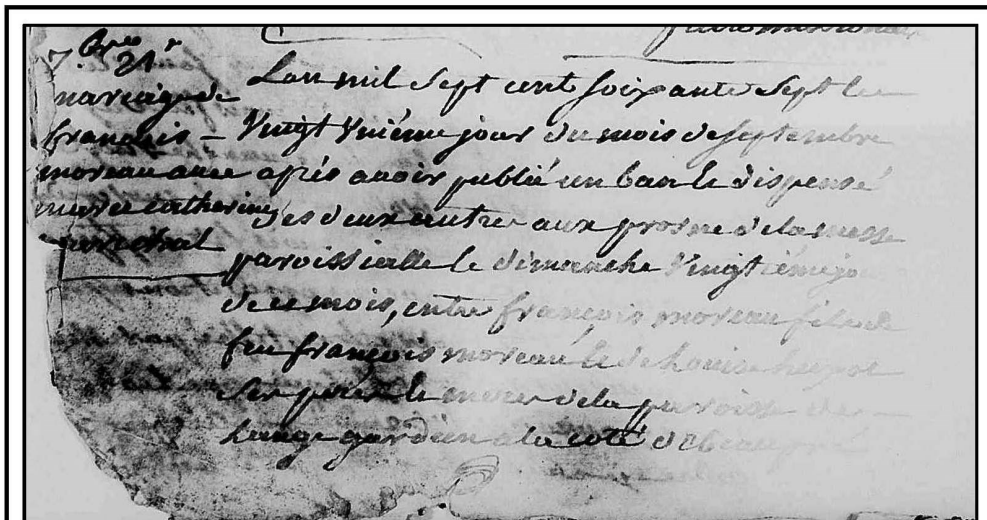 7.bre 21
mariage de
françois –
moreau avec
marie catherine
marechal
Lan mil Sept cent soixante Sept le
Vingt Unième jour du mois de septembre
après avoir publié un ban le dispensé
des deux autres aux prosne de la messe
paroissialle le dimanche Vingtième jour
de ce mois, entre françois moreau fils de
feu françois moreau le de Louise
Ses père le mere de la paroisse de –
Lange gardien a la coté de Beaupré